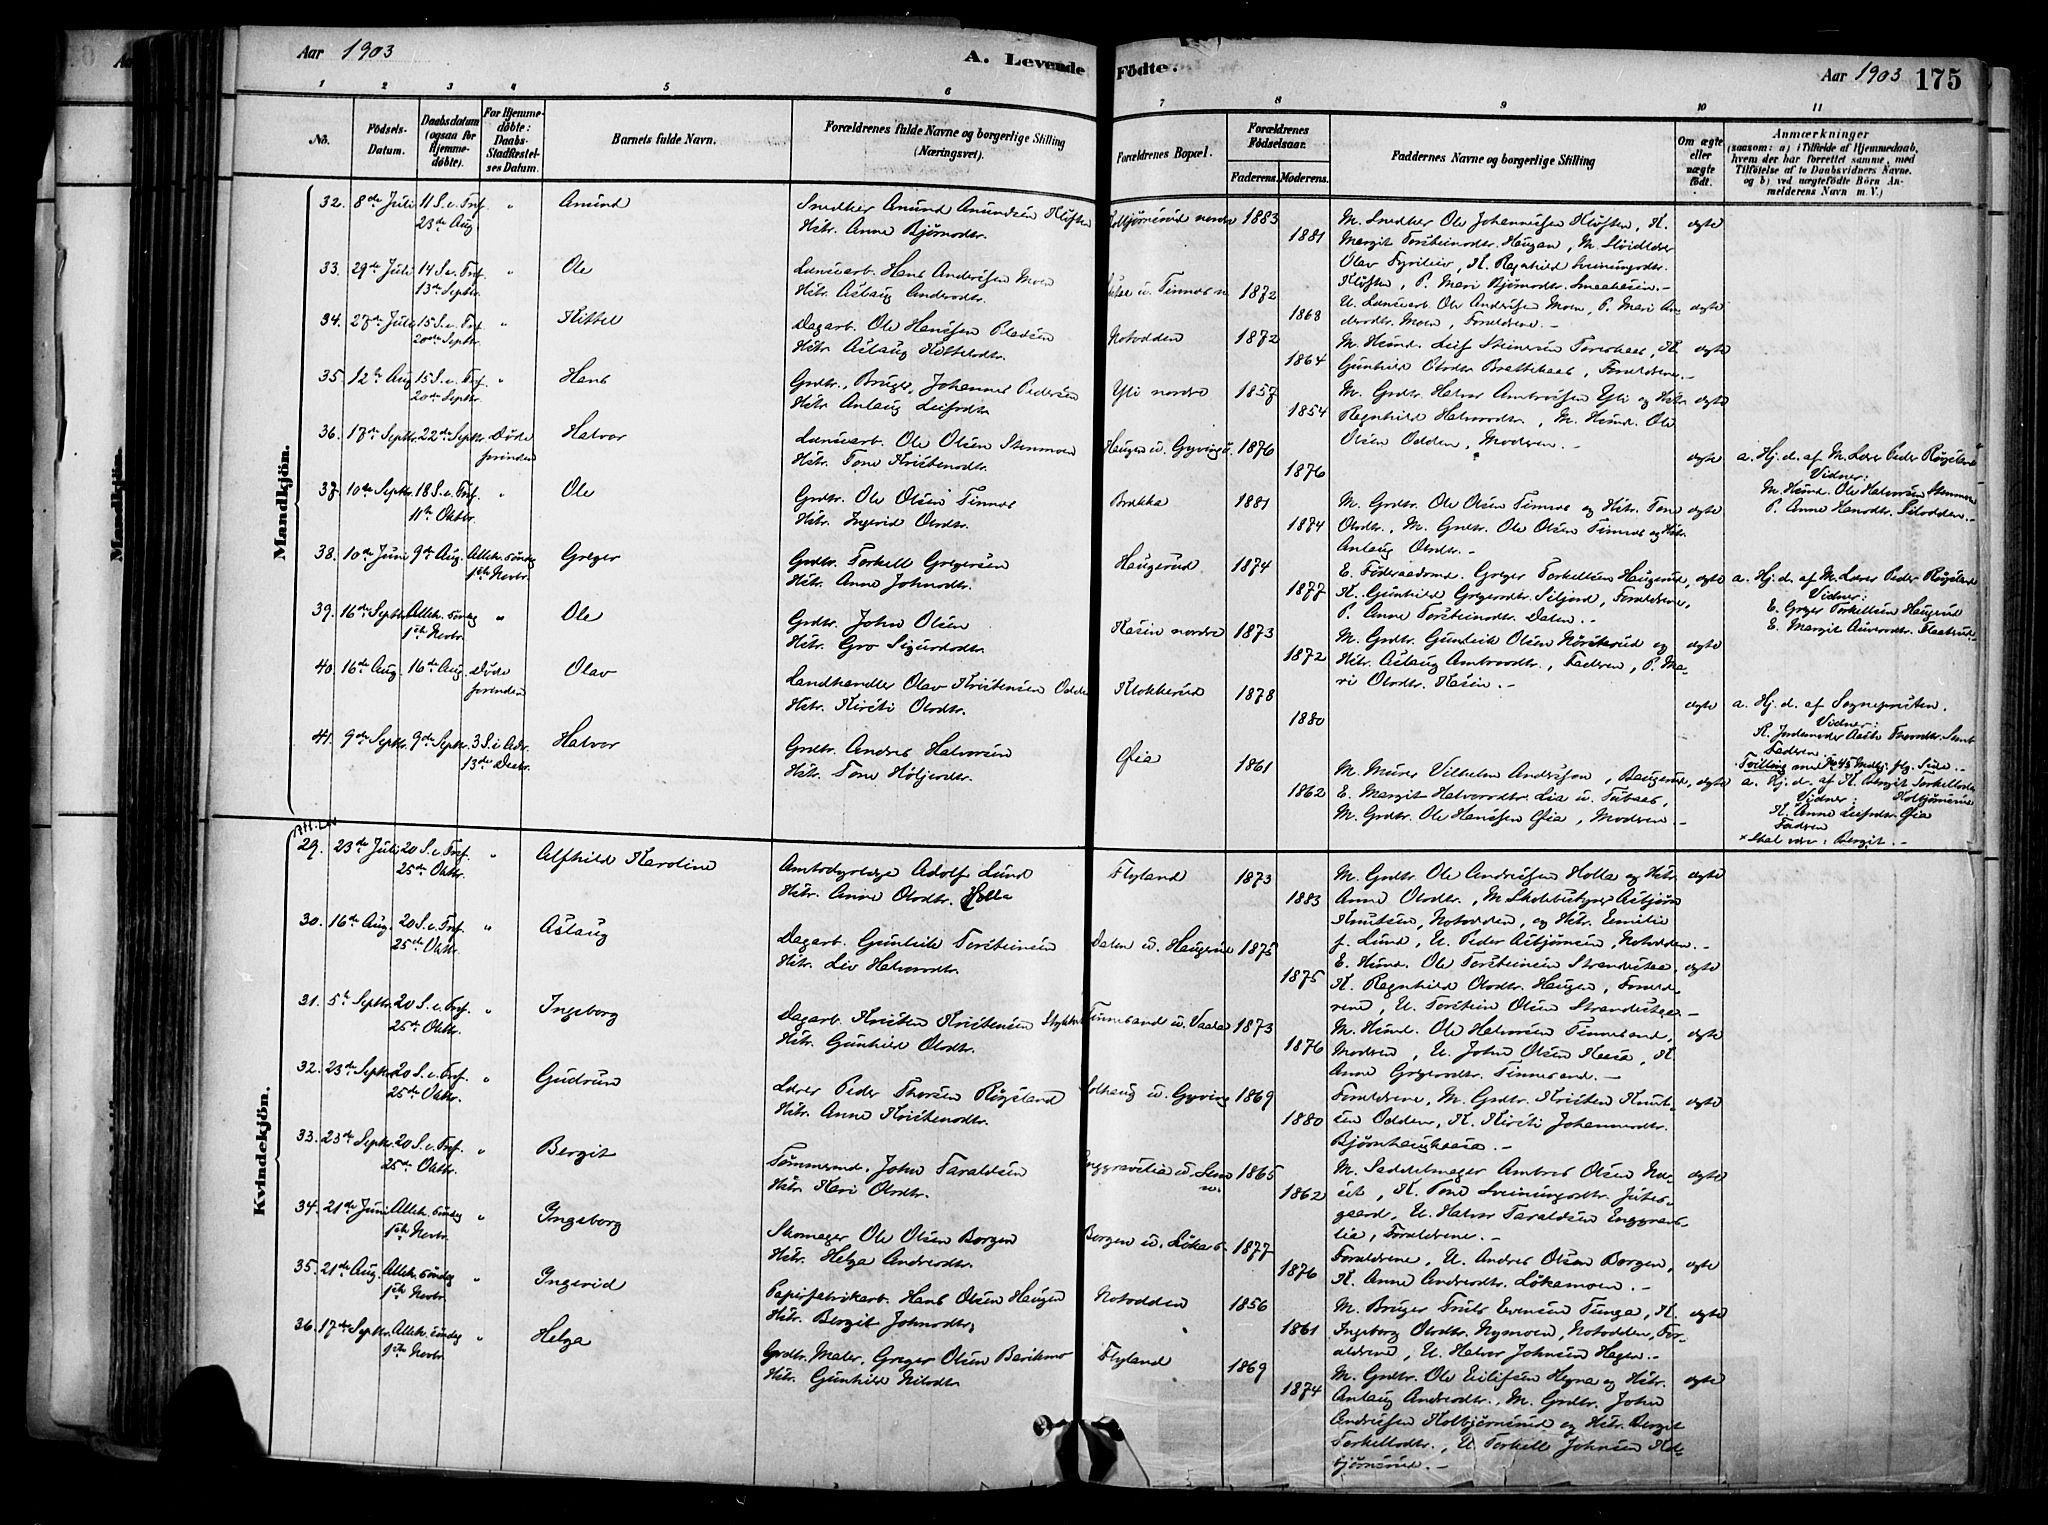 Aar 1903
A. Levende Födte.
Aar 1903 175
1 2 3 4 5 6 7 8 9 10 11
No.
Födsels-Datum.
Daabsdatum (ogsaa for Hjemmedöbte).
For Hjemmedöbte: Daabs-Stadfæstelses Datum.
Barnets fulde Navn.
Forældrenes fulde Navne og borgerlige Stilling (Næringsvei).
Forældrenes Bopæl.
Forældrenes Födselsaar.
Faderens. Moderens.
Faddernes Navne og borgerlige Stilling
Om ægte eller uægte födt.
Anmærkninger
(saasom: a) i Tilfælde af Hjemmedaab, hvem der har forrettet samme, med Tilföielse af to Daabsvidners Navne. og b) ved uægtefödte Börn Anmelderens Navn m. V.)
Mandkjön.
32. 8de Juli 11 S. e. Tref. 23de Aug. " Amund
Snedker Amund Amundsen Kløften
Hstr. Anne Bjørnsdtr.
Kolbjørnsrud nordre 1883 1881
M. Snedker Ole Johannessen Kløften, K.
Margit Torsteinsdtr. Haugan, M.
Olav Fyrileiv, K. Ragnhild Sveinungsdtr.
Kløften, P. Mari Bjørnsdtr.
ægte
33. 29de Juli 14 S. e. Tref. 13de Septbr. " Ole
Lænsearb. Hans Andersen Moen
Hstr. Aslaug Andersdtr.
u. Tinnes 1872 1868
U. Lænsearb. Ole Andersen Moen, P. Mari Andersdtr. Moen, Forældrene.
ægte
34. 27de Juli 15 S. e. Tref. 20de Septbr. " Kittel
Dagarb. Ole Hansen Pladsen
Hstr. Aslaug Kittelsdtr.
Notodden 1872 1864
M. Husmd. Leif Steinersen, K.
Gunhild Olsdtr. Brattekaas, Forældrene.
ægte
35. 12te Aug. 15 S. e. Tref. 20de Septbr. " Hans
Grdbr., Bruger, Johannes Pedersen
Hstr. Anlaug Leifsdtr.
Yli nordre 1857 1854
M. Grdbr. Halvor Ambrosen Yli og Hstr.
Ragnhild Halvorsdtr., M. Husmd. Ole
Olsen Odden, Moderen.
ægte
36. 17de Septbr. 22de Septbr. Døde forinden Halvor
Lænsearb. Ole Olsen Stenmoen
Hstr. Tone Kristensdtr.
Haugen u. Gyving 1876 1876
ægte
a. Hj. d. af M. Lærer Peder Røysland
Vidner:
M. Husmd. Ole Halvorsen Stenmoen
P. Anne Hansdtr.
37. 10de Septbr. 18 S. e. Tref. 11te Oktbr. " Ole
Grdbr. Ole Olsen Tinnes
Hstr. Ingerid Olsdtr.
Brekka 1881 1874
M. Grdbr. Ole Olsen Tinnes og Hstr. Tone
Olsdtr., M. Grdbr. Ole Olsen Tinnes og Hstr.
Anlaug Olsdtr.
ægte
38. 10de Juni 9de Aug. Alleh. søndag 1ste Novbr. Greger
Grdbr. Torkell Gregersen
Hstr. Anne Johnsdtr.
Haugerud 1874 1877
E. Føderaadsmd. Greger Torkellsen Haugerud,
K. Gunhild Gregersdtr. Siljord, Forældrene,
P. Anne Torsteinsdtr. Dalen.
ægte
a. Hj. d. af M. Lærer Peder Røysland
Vidner:
E. Greger Torkellsen Haugerud
E. Margit
39. 16de Septbr. Alleh. søndag 1ste Novbr. " Ole
Grdbr. John Olsen
Hstr. Gro Sigurdsdtr.
Kasin nordre 1873 1872
M. Grdbr. Gunleik Olsen og
Hstr. Aslaug Ambrosdtr., Faderen, P. Mari Olsdtr. Kasin.
ægte
40. 16de Aug. 16de Aug. Døde forinden Olav
Landhandler Olav Kristensen Odden
Hstr. Kirsti Olsdtr.
Klokkerud 1878 1880
ægte
a. Hj. d. af Sognepresten.
Vidner:
K. Jordemoder
Faderen
41. 9de Septbr. 9de Septbr. 3 S. i Adv. 13de Decbr. Halvor
Grdbr. Andres Halvorsen
Hstr. Tone Høljesdtr.
Øia 1861 1862
M. Murer Vilhelm Andersson, Haugerud,
E. Margit Halvorsdtr. Lia u.
M. Grdbr. Ole Hansen Øia, Moderen.
ægte
Tvilling med No 45 Mdkj. flg. Side.
a. Hj. d. af K. Bergit Torkellsdtr.
Vidner: Kolbjørnsrud
K. Anne Leifsdtr. Øia
Faderen
× Skal være: Bergit.
Kvindekjön.
29. 23de Juli 20 S. e. Tref. 25de Oktbr. " Alfhild Karoline
Amtsdyrlæge Adolf Lund
Hstr. Anne Olsdtr. Holla
Flyland 1873 1883
M. Grdbr. Ole Andersen Holla og Hstr.
Anne Olsdtr., M. Skolebestyrer Asbjørn
Knutsen, Notodden, og Hstr. Emilie
f. Lund, U. Peder Asbjørnsen, Notodden.
ægte
30. 16de Aug. 20 S. e. Tref. 25de Oktbr. " Aslaug
Dagarb. Gunleik Torsteinsen
Hstr. Liv Halvorsdtr.
Dalen u. Haugerud 1875 1875
E. Husmd. Ole Torsteinsen
K. Ragnhild Olsdtr. Haugen, Forældrene, U. Torstein Olsen
ægte
31. 5te Septbr. 20 S. e. Tref. 25de Oktbr. " Ingeborg
Dagarb. Kristen Kristensen
Hstr. Gunhild Olsdtr.
Tinnesand u. Vaala 1873 1876
M. Husmd. Ole Halvorsen Tinnesand,
Moderen, U. John Olsen Kaasa, K.
Anne Gregersdtr. Tinnesand.
ægte
32. 23de Septbr. 20 S. e. Tref. 25de Oktbr. " Gudrun
Lærer Peder Thorsen Røysland
Hstr. Anne Kristensdtr.
Solhaug u. Gyving 1869 1880
Forældrene, M. Grdbr. Kristen Knutsen Odden, K. Kirsti Johannesdtr.
Bjørnhaugkaasa.
ægte
33. 23de Septbr. 20 S. e. Tref. 25de Oktbr. " Bergit
Tømmermd. John Taraldsen
Hstr. Kari Olsdtr.
Enggravslia u. Sem 1865 1862
M. Sadelmager Ambros Olsen
K. Tone Sveinungsdtr.
U. Halvor Taraldsen Enggravslia, Forældrene.
ægte
34. 21de Juni Alleh. søndag 1ste Novbr. " Ingeborg
Skomager Ole Olsen Borgen
Hstr. Helga Andersdtr.
Borgen u. Løkaas 1877 1876
Forældrene, U. Andres Olsen Borgen,
K. Anne Andersdtr. Løkamoen.
ægte
35. 21de Aug. Alleh. søndag 1ste Novbr. " Ingerid
Papirfabrikarb. Hans Olsen Haugen
Hstr. Bergit Johnsdtr.
Notodden 1856 1861
M. Bruger Truls Evensen Tunga, K.
Ingeborg Olsdtr. Nymoen, Notodden, Forældrene, U. Halvor Johnsen Hagen.
ægte
36. 17de Septbr. Alleh. søndag 1ste Novbr. " Helga
Grdbr., Maler, Greger Olsen Barikmo
Hstr. Gunhild Nilsdtr.
Flyland 1869 1874
M. Grdbr. Ole Eilifsen Heyna og Hstr.
Anlaug Andersdtr., M. Grdbr. John
Andersen Kolbjørnsrud og Hstr. Bergit
Torkellsdtr., U. Torkell Johnsen Kolbjørnsrud.
ægte